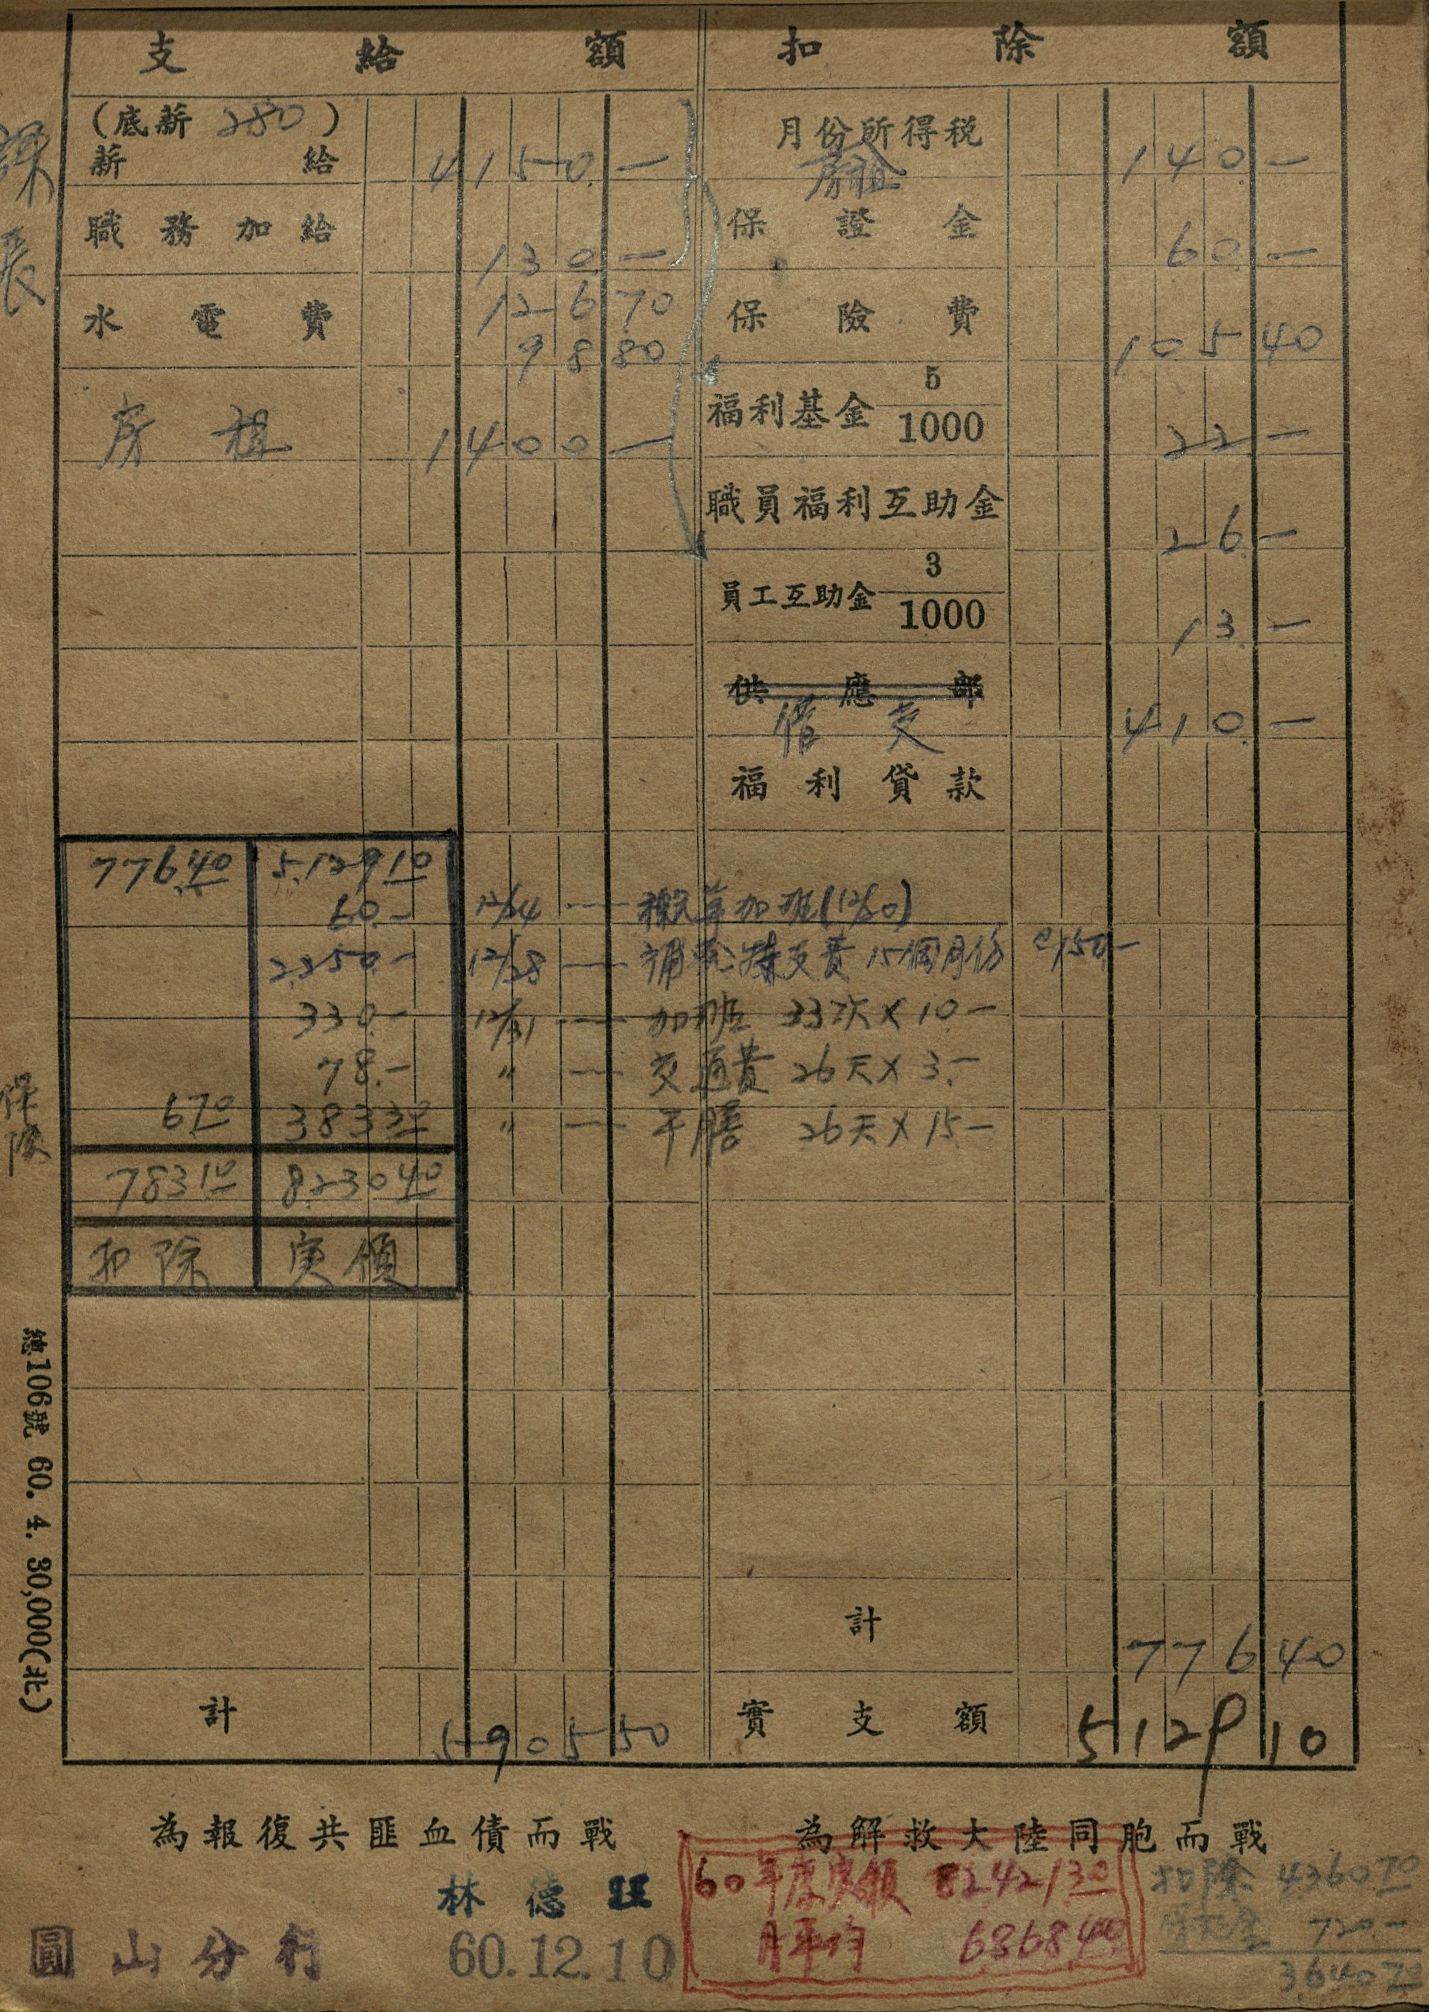 支給額 扣除額
(底薪 280)
薪給 4150.—
月份所得稅
房租 140.—
職務加給 130.—
保證金 60.—
水電費 126 70
98 80
保險費 105 40
房租 1400.—
福利基金 5/1000 22—
職員福利互助金 26.—
員工互助金 3/1000 13.—
供應部
借支 410.—
福利貸款
776.40 5,129 10
60.— 12/24 —— 加班(12/20)
2,250.— 12/28 —— 補發特支費 15個月份 @150.—
330.— 12/31 —— 加班 33次×10.—
78.— 〃 —— 交通費 26天×3.—
6 70 383 30 〃 —— 午膳 26天×15.—
783 10 8,230 40
扣除 実領
計 776 40
計 5905 50
實支額 5129 10
課長
保險
總106號 60. 4. 30,000(北)
為報復共匪血債而戰 為解救大陸同胞而戰
林德旺
60.12.10
圓山分行
60年度実領 82421 30
月平均 6868 40
扣除 4360 70
720.—
3,640 70